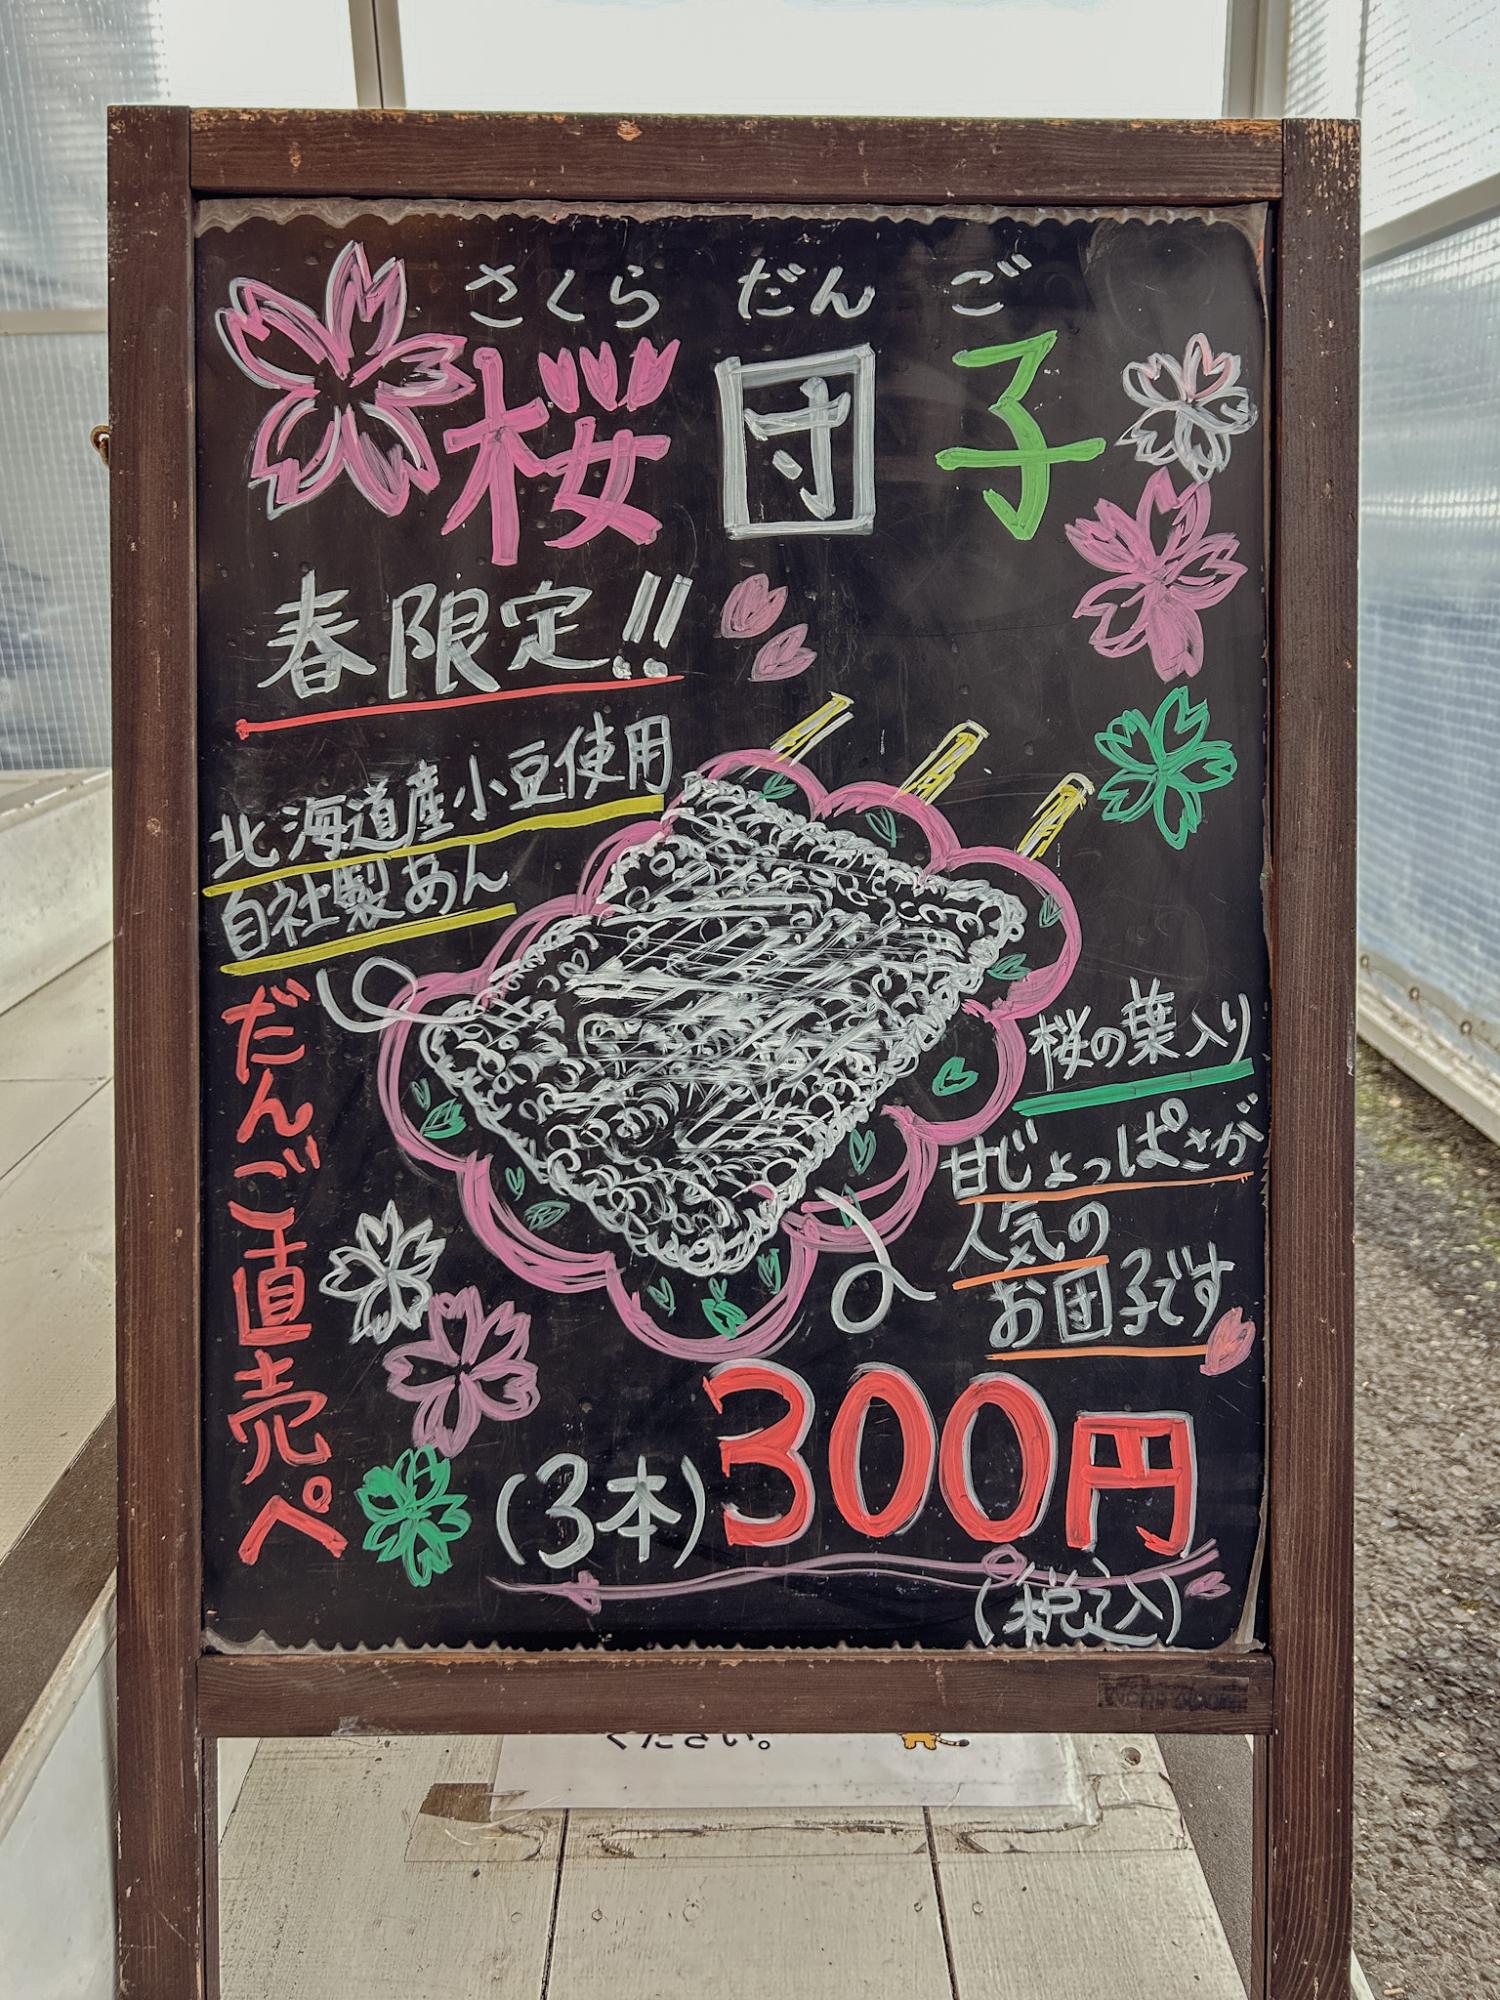 さくら だんご
桜団子
春限定!!
北海道産小豆使用
自社製あん
だんご直売ぺ
桜の葉入り
甘じょっぱさが
人気の
お団子です
(3本)300円
(税込)
ください。